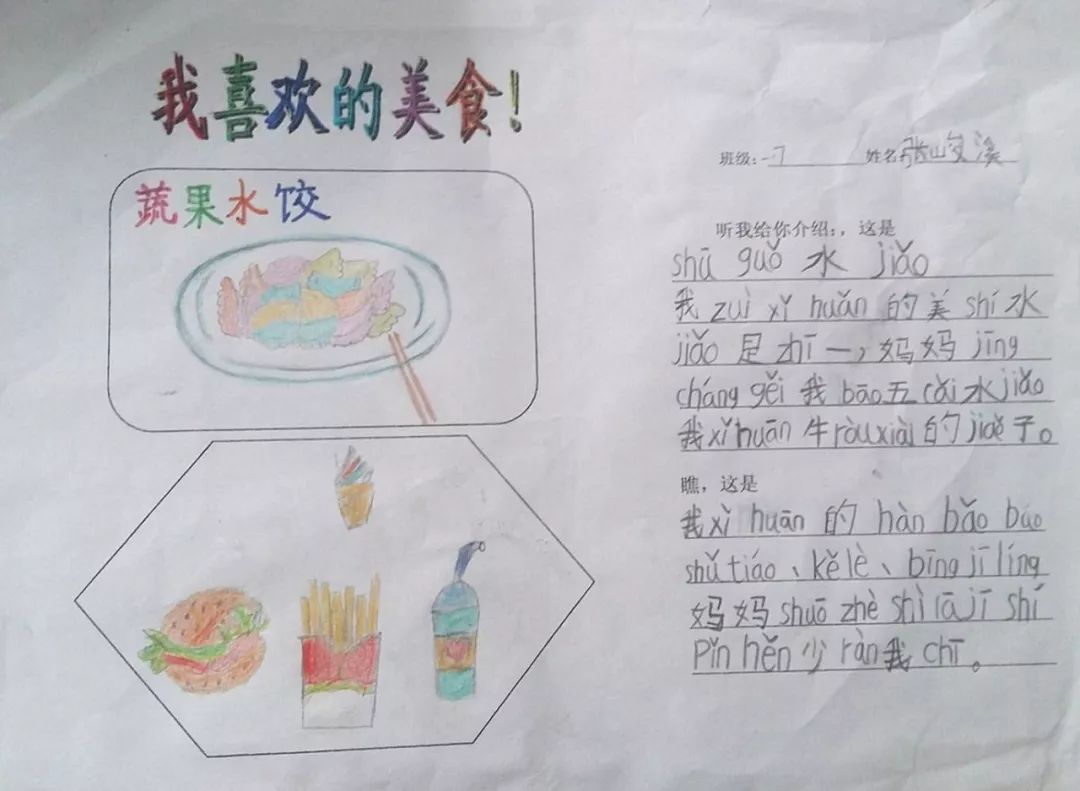 我喜欢的美食!
蔬果水饺
班级: 一7 姓名 张山
听我给你介绍:，这是
shū guǒ 水 jiǎo
我 zuì xǐ huǎn 的 美 shí 水
jiǎo 是 zhī 一，妈妈 jīng
cháng gěi 我 bāo 五 cǎi 水 jiǎo
我 xǐ huān 牛 ròu xiàn 的 jiǎo 子。
瞧，这是
我 xǐ huān 的 hàn bǎo bāo
shǔ tiáo、kě lè、bīng jī líng
妈妈 shuō zhè shì lā jī shí
Pǐn hěn 少 ràn 我 chī。